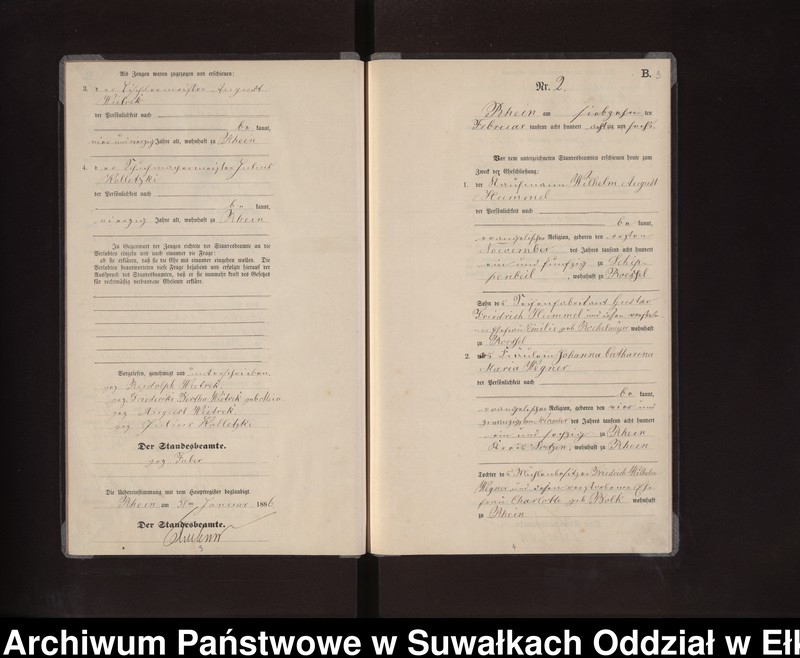 Als Zeugen waren zugezogen und erschienen:
3. der Tischlermeister August
Wietrek
der Persönlichkeit nach
be kannt,
vierzig Jahre alt, wohnhaft zu Rhein
4. der Schuhmachermeister Julius
Kolletzki
der Persönlichkeit nach
be kannt,
vierzig Jahre alt, wohnhaft zu Rhein
In Gegenwart der Zeugen richtete der Standesbeamte an die
Verlobten einzeln und nach einander die Frage:
ob sie erklären, daß sie die Ehe mit einander eingehen wollen. Die
Verlobten beantworteten diese Frage bejahend und erfolgte hierauf der
Ausspruch des Standesbeamten, daß er sie nunmehr kraft des Gesetzes
für rechtmäßig verbundene Eheleute erkläre.
Vorgelesen, genehmigt und unterschrieben
gez. Rudolph Wietrek
gez. Friederike Bertha Wietrek geb.
gez. August Wietrek
gez. Julius Kolletzki
Der Standesbeamte.
gez.
Die Uebereinstimmung mit dem Hauptregister beglaubigt
Rhein am Januar 1886
Der Standesbeamte.
B. 3
Nr. 2.
Rhein am siebzehn ten
Februar tausend acht hundert achtzig und sechs.
Vor dem unterzeichneten Standesbeamten erschienen heute zum
Zweck der Eheschließung:
1. der Kaufmann Wilhelm August
Hummel
der Persönlichkeit nach
be kannt,
evangelischer Religion, geboren den ersten
November des Jahres tausend acht hundert
ein und fünfzig zu Schip-
penbeil, wohnhaft zu Roessel
Sohn des Gustav
Friedrich Hummel und dessen
Ehefrau Emilie geb. wohnhaft
zu Roessel
2. das Fräulein Johanna Catharina
Maria Wegner
der Persönlichkeit nach
be kannt,
evangelischer Religion, geboren den vier und
zwanzigsten des Jahres tausend acht hundert
ein und sechzig zu Rhein
Kreis Loetzen, wohnhaft zu Rhein
Tochter des Mühlenbesitzer Friedrich Wilhelm
Wegner und dessen verstorbenen Ehe-
frau Charlotte geb. Bolk wohnhaft
zu Rhein
Archiwum Państwowe w Suwałkach Oddział w Ełk